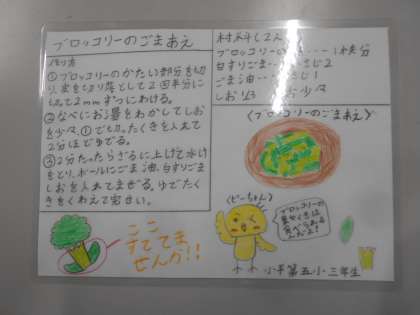 ブロッコリーのごまあえ
作り方
①ブロッコリーのかたい部分を切
り、皮を切り落として2回半分に
切って2mmずつにわける。
②なべにお湯をわかしてしお
を少々、①で切ったくきを入れて
2分ほどゆでる。
③2分たったらざるに上げて水け
をとり、ボールにごま油、白すりごま
しおを入れてまぜる。ゆでたく
きをくわえて完せい。
材料(2人
ブロッコリーの
白すりごま・・・・大さじ2
ごま油・・・・
しお
少々
〈ブロッコリーのごまあえ〉
〈ピーちゃん〉
ブロッコリーの
くきは
食べられる
んだよ!
ここ
すててま
せんか!!
小平第五小・三年生